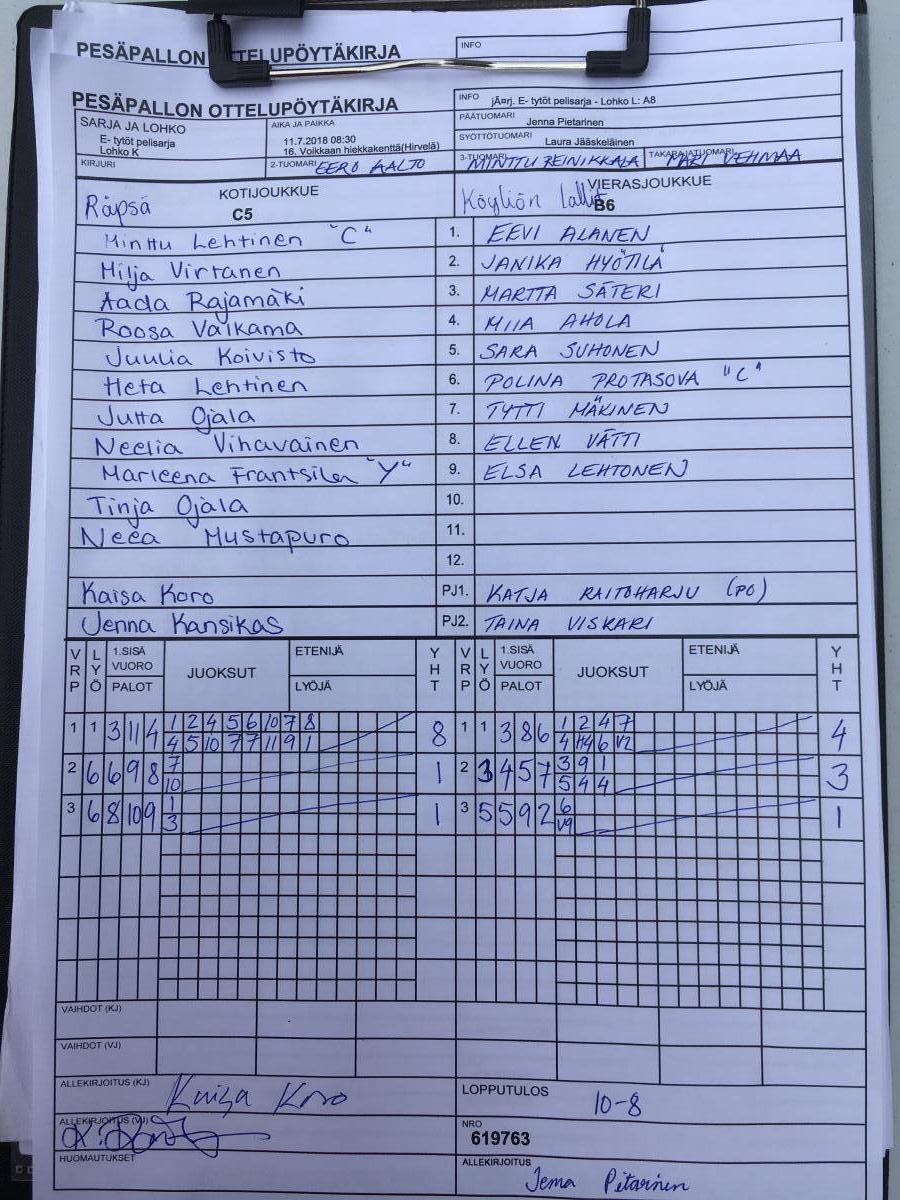 PESÄPALLON OTTELUPÖYTÄKIRJA
INFO
PESÄPALLON OTTELUPÖYTÄKIRJA
INFO jÃ¤rj. E- tytöt pelisarja - Lohko L: A8
SARJA JA LOHKO
E- tytöt pelisarja
Lohko K
AIKA JA PAIKKA
11.7.2018 08:30
16. Voikkaan hiekkakenttä(Hirvelä)
PÄÄTUOMARI Jenna Pietarinen
SYÖTTÖTUOMARI Laura Jääskeläinen
KIRJURI
2-TUOMARI EERO AALTO
3-TUOMARI MINTTU REINIKKALA
TAKARAJATUOMARI MARI VEHMAA
Räpsä KOTIJOUKKUE
C5
Köyliön Lallit VIERASJOUKKUE
B6
Minttu Lehtinen "C" 1. EEVI ALANEN
Milja Virtanen 2. JANIKA HYÖTILÄ
Aada Rajamäki 3. MARTTA SÄTERI
Roosa Valkama 4. MIIA AHOLA
Juulia Koivisto 5. SARA SUHONEN
Heta Lehtinen 6. POLINA PROTASOVA "C"
Jutta Ojala 7. TYTTI MÄKINEN
Neelia Vihavainen 8. ELLEN VÄTTI
Marleena Frantsila "Y" 9. ELSA LEHTONEN
Tinja Ojala 10.
Neea Mustapuro 11.
12.
Kaisa Koro PJ1. KATJA RAITOHARJU (PO)
Jenna Kansikas PJ2. TAINA VISKARI
VRP LYÖ 1.SISÄ VUORO PALOT JUOKSUT ETENIJÄ LYÖJÄ YHT VRP LYÖ 1.SISÄ VUORO PALOT JUOKSUT ETENIJÄ LYÖJÄ YHT
1 1 3 11 4 1 2 4 5 6 10 7 8 8 1 1 3 8 6 1 2 4 7 4
4 5 10 7 7 11 9 1 4 H4 6 V2
2 6 6 9 8 7 1 2 3 4 5 7 3 9 1 3
10 5 4 4
3 6 8 10 9 1 1 3 5 5 9 2 6 1
3 V9
VAIHDOT (KJ)
VAIHDOT (VJ)
ALLEKIRJOITUS (KJ) Kaisa Koro
LOPPUTULOS 10-8
ALLEKIRJOITUS (VJ)
NRO
619763
HUOMAUTUKSET
ALLEKIRJOITUS Jenna Pietarinen